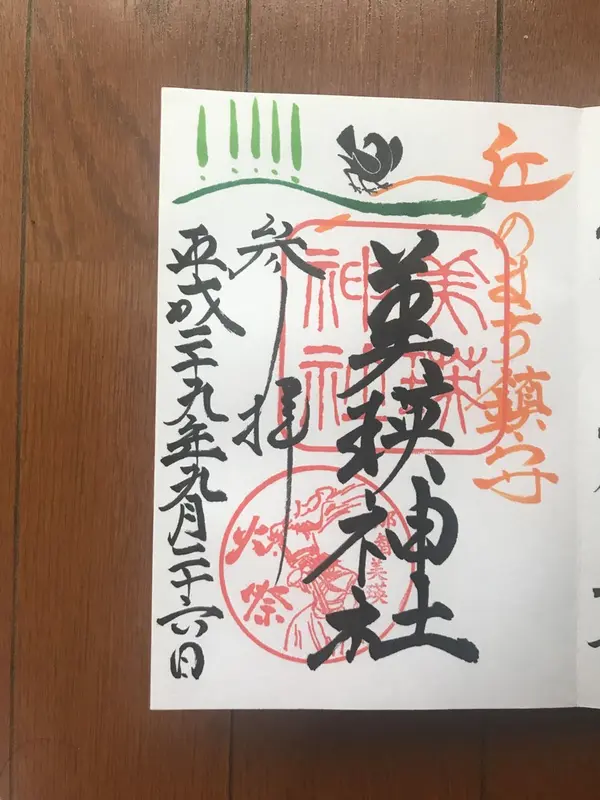 丘のまち鎮守
美瑛神社
美瑛
神社
参拝
那智美瑛
火祭
平成二十九年九月二十六日